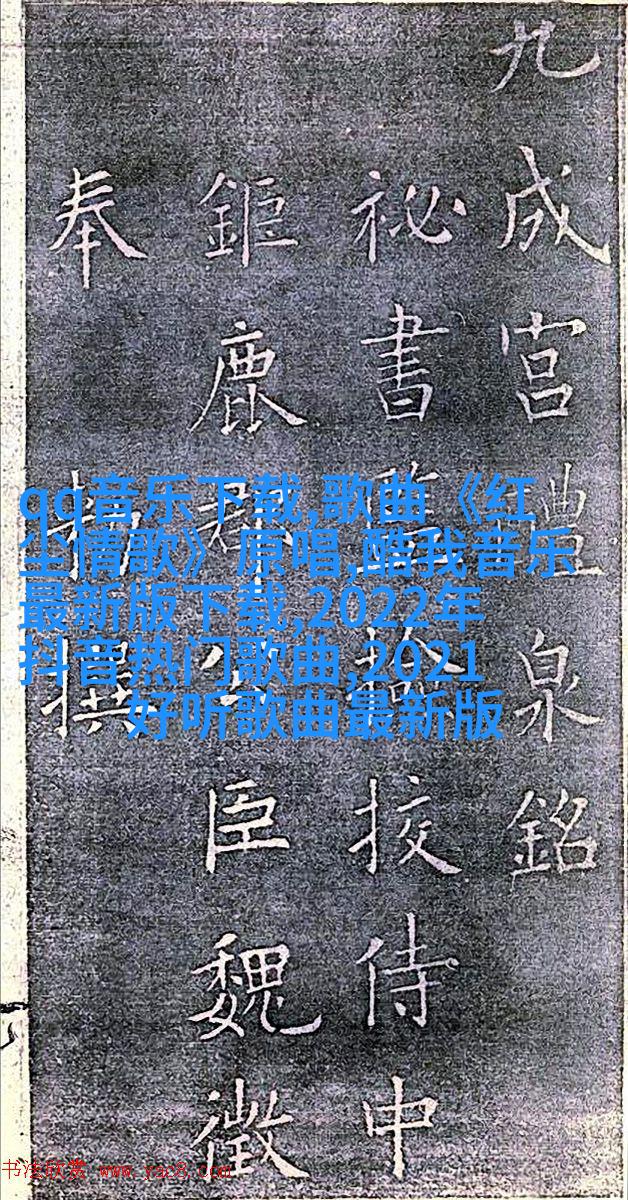 九成宫醴泉銘
祕書監撿挍侍中
鉅鹿郡公臣魏徵
奉勑撰
qq音乐下载,歌曲《红
尘情歌》原唱,酷我音乐
最新版下载,2022年
抖音热门歌曲,2021
好听歌曲最新版
书法欣赏 www.yac8.com